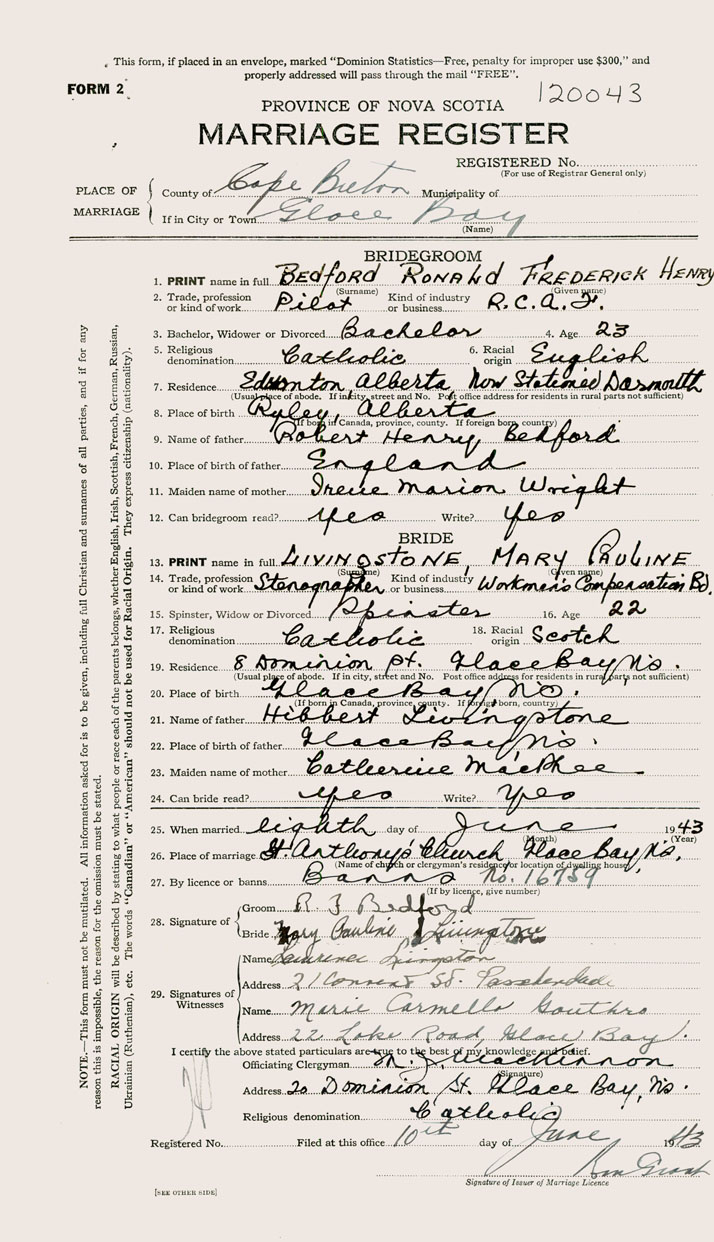 This form, if placed in an envelope, marked "Dominion Statistics—Free, penalty for improper use $300," and
properly addressed will pass through the mail "FREE".
FORM 2
120043
PROVINCE OF NOVA SCOTIA
MARRIAGE REGISTER
REGISTERED No.
(For use of Registrar General only)
PLACE OF MARRIAGE
County of Cape Breton Municipality of
If in City or Town Glace Bay
(Name)
BRIDEGROOM
1. PRINT name in full BEDFORD RONALD FREDERICK HENRY
(Surname) (Given name)
2. Trade, profession or kind of work Pilot Kind of industry or business R.C.A.F.
3. Bachelor, Widower or Divorced Bachelor 4. Age 23
5. Religious denomination Catholic 6. Racial origin English
7. Residence Edmonton Alberta, Now Stationed Darmouth
(Usual place of abode. If in city, street and No. Post office address for residents in rural parts not sufficient)
8. Place of birth Ryley, Alberta
(If born in Canada, province, county. If foreign born, country)
9. Name of father Robert Henry Bedford
10. Place of birth of father England
11. Maiden name of mother Irene Marion Wright
12. Can bridegroom read? yes Write? yes
BRIDE
13. PRINT name in full LIVINGSTONE, MARY PAULINE
(Surname) (Given name)
14. Trade, profession or kind of work Stenographer Kind of industry or business Workmen's Compensation Bd.
15. Spinster, Widow or Divorced Spinster 16. Age 22
17. Religious denomination Catholic 18. Racial origin Scotch
19. Residence 8 Dominion St. Glace Bay, N.S.
(Usual place of abode. If in city, street and No. Post office address for residents in rural parts not sufficient)
20. Place of birth Glace Bay, N.S.
(If born in Canada, province, county. If foreign born, country)
21. Name of father Hibbert Livingstone
22. Place of birth of father Glace Bay N.S.
23. Maiden name of mother Catherine MacPhee
24. Can bride read? yes Write? yes
25. When married eighth day of June 1943
(Month) (Year)
26. Place of marriage St. Anthony's Church, Glace Bay, N.S.
(Name of church or clergyman's residence or location of dwelling house)
27. By licence or banns Banns No. 16759
(If by licence, give number)
28. Signature of
Groom R. F Bedford
Bride Mary Pauline Livingstone
29. Signatures of Witnesses
Name Lawrence Livingston
Address 21 St. Passchendale
Name Marie Carmella Gouthro
Address 22 Lake Road, Glace Bay.
I certify the above stated particulars are true to the best of my knowledge and belief.
Officiating Clergyman MacKinnon
(Signature)
Address 20 Dominion St. Glace Bay, N.S.
Religious denomination Catholic
Registered No. Filed at this office 10th day of June 1943
Signature of Issuer of Marriage Licence
[SEE OTHER SIDE]
NOTE.—This form must not be mutilated. All information asked for is to be given, including full Christian and surnames of all parties, and if for any
reason this is impossible, the reason for the omission must be stated.
RACIAL ORIGIN will be described by stating to what people or race each of the parents belongs, whether English, Irish, Scottish, French, German, Russian,
Ukrainian (Ruthenian), etc. The words "Canadian" or "American" should not be used for Racial Origin. They express citizenship (nationality).